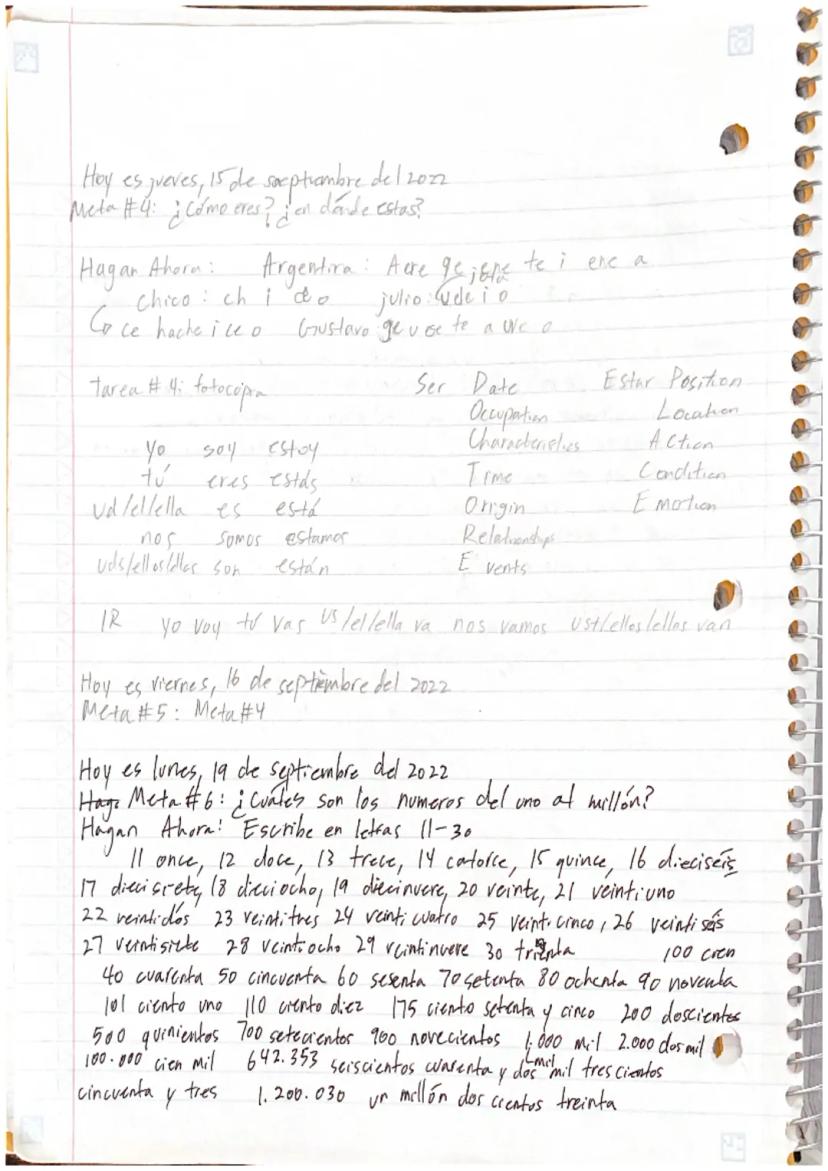 Hoy es jueves, 15 de septiembre del 2022
Meta #4: ¿Cómo eres? ¿en dónde estas?
Hagan Ahora: Argentina: A ere ge te i ene a
chico: ch i o julio:
ce hache i ce o Gustavo ge u ese te a uve o
tarea #4: fotocopia Ser Date Estar Position
Occupation Location
yo soy estoy Characteristics Action
tú eres estás Time Condition
ud/el/ella es está Origin Emotion
nos somos estamos Relationships
uds/ellos/ellas son están Events
IR yo voy tú vas us/el/ella va nos vamos ust/ellos/ellas van
Hoy es viernes, 16 de septiembre del 2022
Meta #5: Meta #4
Hoy es lunes, 19 de septiembre del 2022
Meta #6: ¿Cuáles son los numeros del uno al millón?
Hagan Ahora: Escribe en letras 11-30
11 once, 12 doce, 13 trece, 14 catorce, 15 quince, 16 dieciséis
17 diecisiete, 18 dieciocho, 19 diecinueve, 20 veinte, 21 veintiuno
22 veintidós 23 veintitres 24 veinticuatro 25 veinticinco, 26 veintiséis
27 veintisiete 28 veintiocho 29 veintinueve 30 treinta 100 cien
40 cuarenta 50 cincuenta 60 sesenta 70 setenta 80 ochenta 90 noventa
101 ciento uno 110 ciento diez 175 ciento setenta y cinco 200 doscientos
500 quinientos 700 setecientos 900 novecientos 1,000 mil 2.000 dos mil
100.000 cien mil 642.353 seiscientos cuarenta y dos mil trescientos
cincuenta y tres 1.200.030 un millón dos cientos treinta